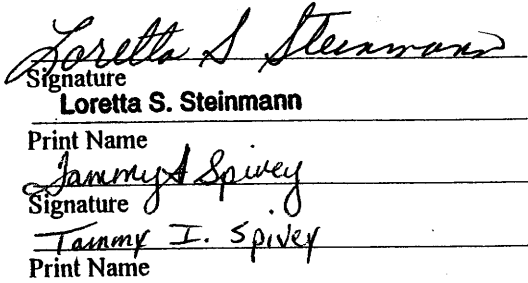 Loretta S Steinmann
Signature
Loretta S. Steinmann
Print Name
Tammy I Spivey
Signature
Tammy I. Spivey
Print Name